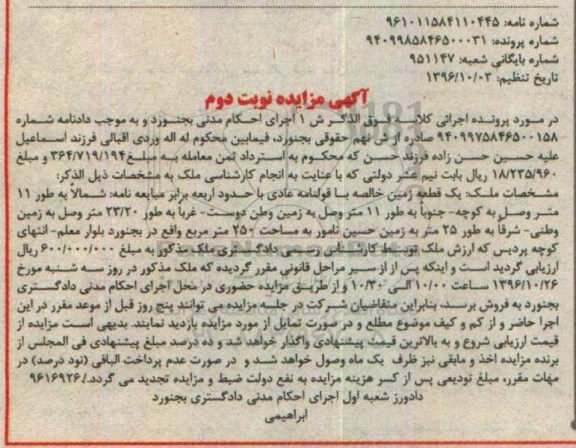 شماره نامه: ۹۶۱۰۱۱۵۸۴۱۱۰۴۴۵
شماره پرونده: ۹۴۰۹۹۸۵۸۴۶۵۰۰۰۳۱
شماره بایگانی شعبه: ۹۵۱۱۴۷
تاریخ تنظیم: ۱۳۹۶/۱۰/۰۳
آگهی مزایده نوبت دوم
در مورد پرونده اجرائی کلاسه فوق الذکر ش ۱ اجرای احکام مدنی بجنورد و به موجب دادنامه شماره
۹۴۰۹۹۷۵۸۴۶۵۰۰۱۵۸ صادره از ش نهم حقوقی بجنورد، فیمابین محکوم له اله وردی اقبالی فرزند اسماعیل
علیه حسین حسن زاده فرزند حسن که محکوم به استرداد ثمن معامله به مبلغ ۳۶۴/۷۱۹/۱۹۴ و مبلغ
۱۸/۲۳۵/۹۶۰ ریال بابت نیم عشر دولتی که با عنایت به انجام کارشناسی ملک به مشخصات ذیل الذکر:
مشخصات ملک: یک قطعه زمین خالصه با قولنامه عادی با حدود اربعه برابر مبایعه نامه: شمالاً به طور ۱۱
متر وصل به کوچه- جنوباً به طور ۱۱ متر وصل به زمین وطن دوست- غرباً به طور ۲۳/۲۰ متر وصل به زمین
وطنی- شرقاً به طور ۲۵ متر به زمین حسین نامور به مساحت ۲۵۰ متر مربع واقع در بجنورد بلوار معلم- انتهای
کوچه پردیس که ارزش ملک توسط کارشناس رسمی دادگستری ملک مذکور به مبلغ ۶۰۰/۰۰۰/۰۰۰ ریال
ارزیابی گردید است و اینکه پس از از سیر مراحل قانونی مقرر گردیده که ملک مذکور در روز سه شنبه مورخ
۱۳۹۶/۱۰/۲۶ ساعت ۱۰/۰۰ الی ۱۰/۳۰ و از طریق مزایده حضوری در محل اجرای احکام مدنی دادگستری
بجنورد به فروش برسد، بنابراین متقاضیان شرکت در جلسه مزایده می توانند پنج روز قبل از موعد مقرر در این
اجرا حاضر و از کم و کیف موضوع مطلع و در صورت تمایل از مورد مزایده بازدید نمایند. بدیهی است مزایده از
قیمت ارزیابی شروع و به بالاترین قیمت پیشنهادی واگذار خواهد شد و ده درصد مبلغ پیشنهادی فی المجلس از
برنده مزایده اخذ و مابقی نیز ظرف یک ماه وصول خواهد شد و در صورت عدم پرداخت الباقی (نود درصد) در
مهلت مقرر، مبلغ تودیعی پس از کسر هزینه مزایده به نفع دولت ضبط و مزایده تجدید می گردد./۹۶۱۶۹۲۶
دادورز شعبه اول اجرای احکام مدنی دادگستری بجنورد
ابراهیمی